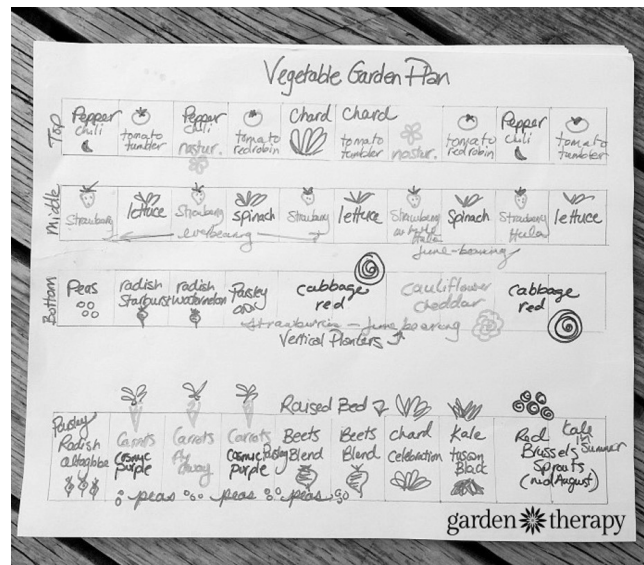 Vegetable Garden Plan
Top
Pepper chili
tomato tumbler
Pepper chili nastur.
tomato redrobin
Chard
Chard tomato tumbler
nastur.
tomato redrobin
Pepper chili
tomato tumbler
Middle
Strawberry
lettuce
Strawberry
spinach
Strawberry
lettuce
Strawberry
Spinach
Strawberry
lettuce
everbearing
June-bearing
Bottom
Peas
radish Starburst
radish watermelon
Parsley
cabbage red
cauliflower cheddar
cabbage red
strawberries - June bearing
Vertical Planters
Raised Bed
Parsley Radish
Carrots Cosmic purple
Carrots fly away
Carrots Cosmic purple
Parsley
Beets Blend
Beets Blend
Chard Celebration
Kale tuscan Black
Red Brussels Sprouts (mid August)
Kale in Summer
peas peas peas
garden therapy